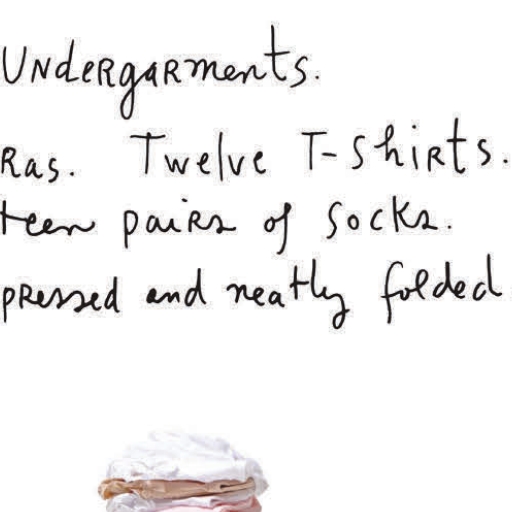 UNdeRgaRments.
Ras. Twelve T-ShiRts.
teen paiRs of Socks.
pRessed and neatly folded